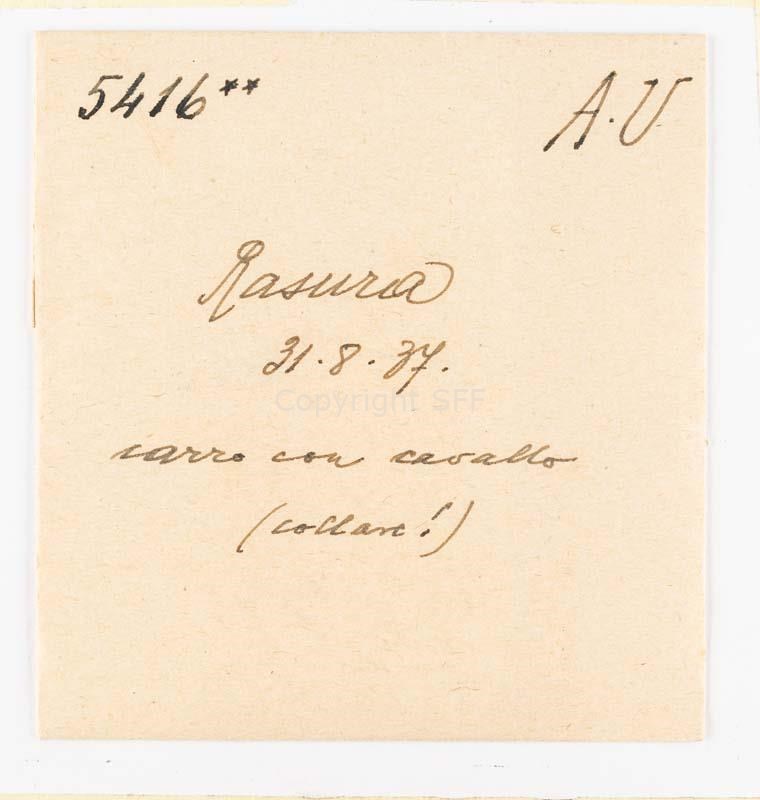 5416** A.V
Rasura
31.8.37.
Copyright SFF
carro con cavallo
(collare!)